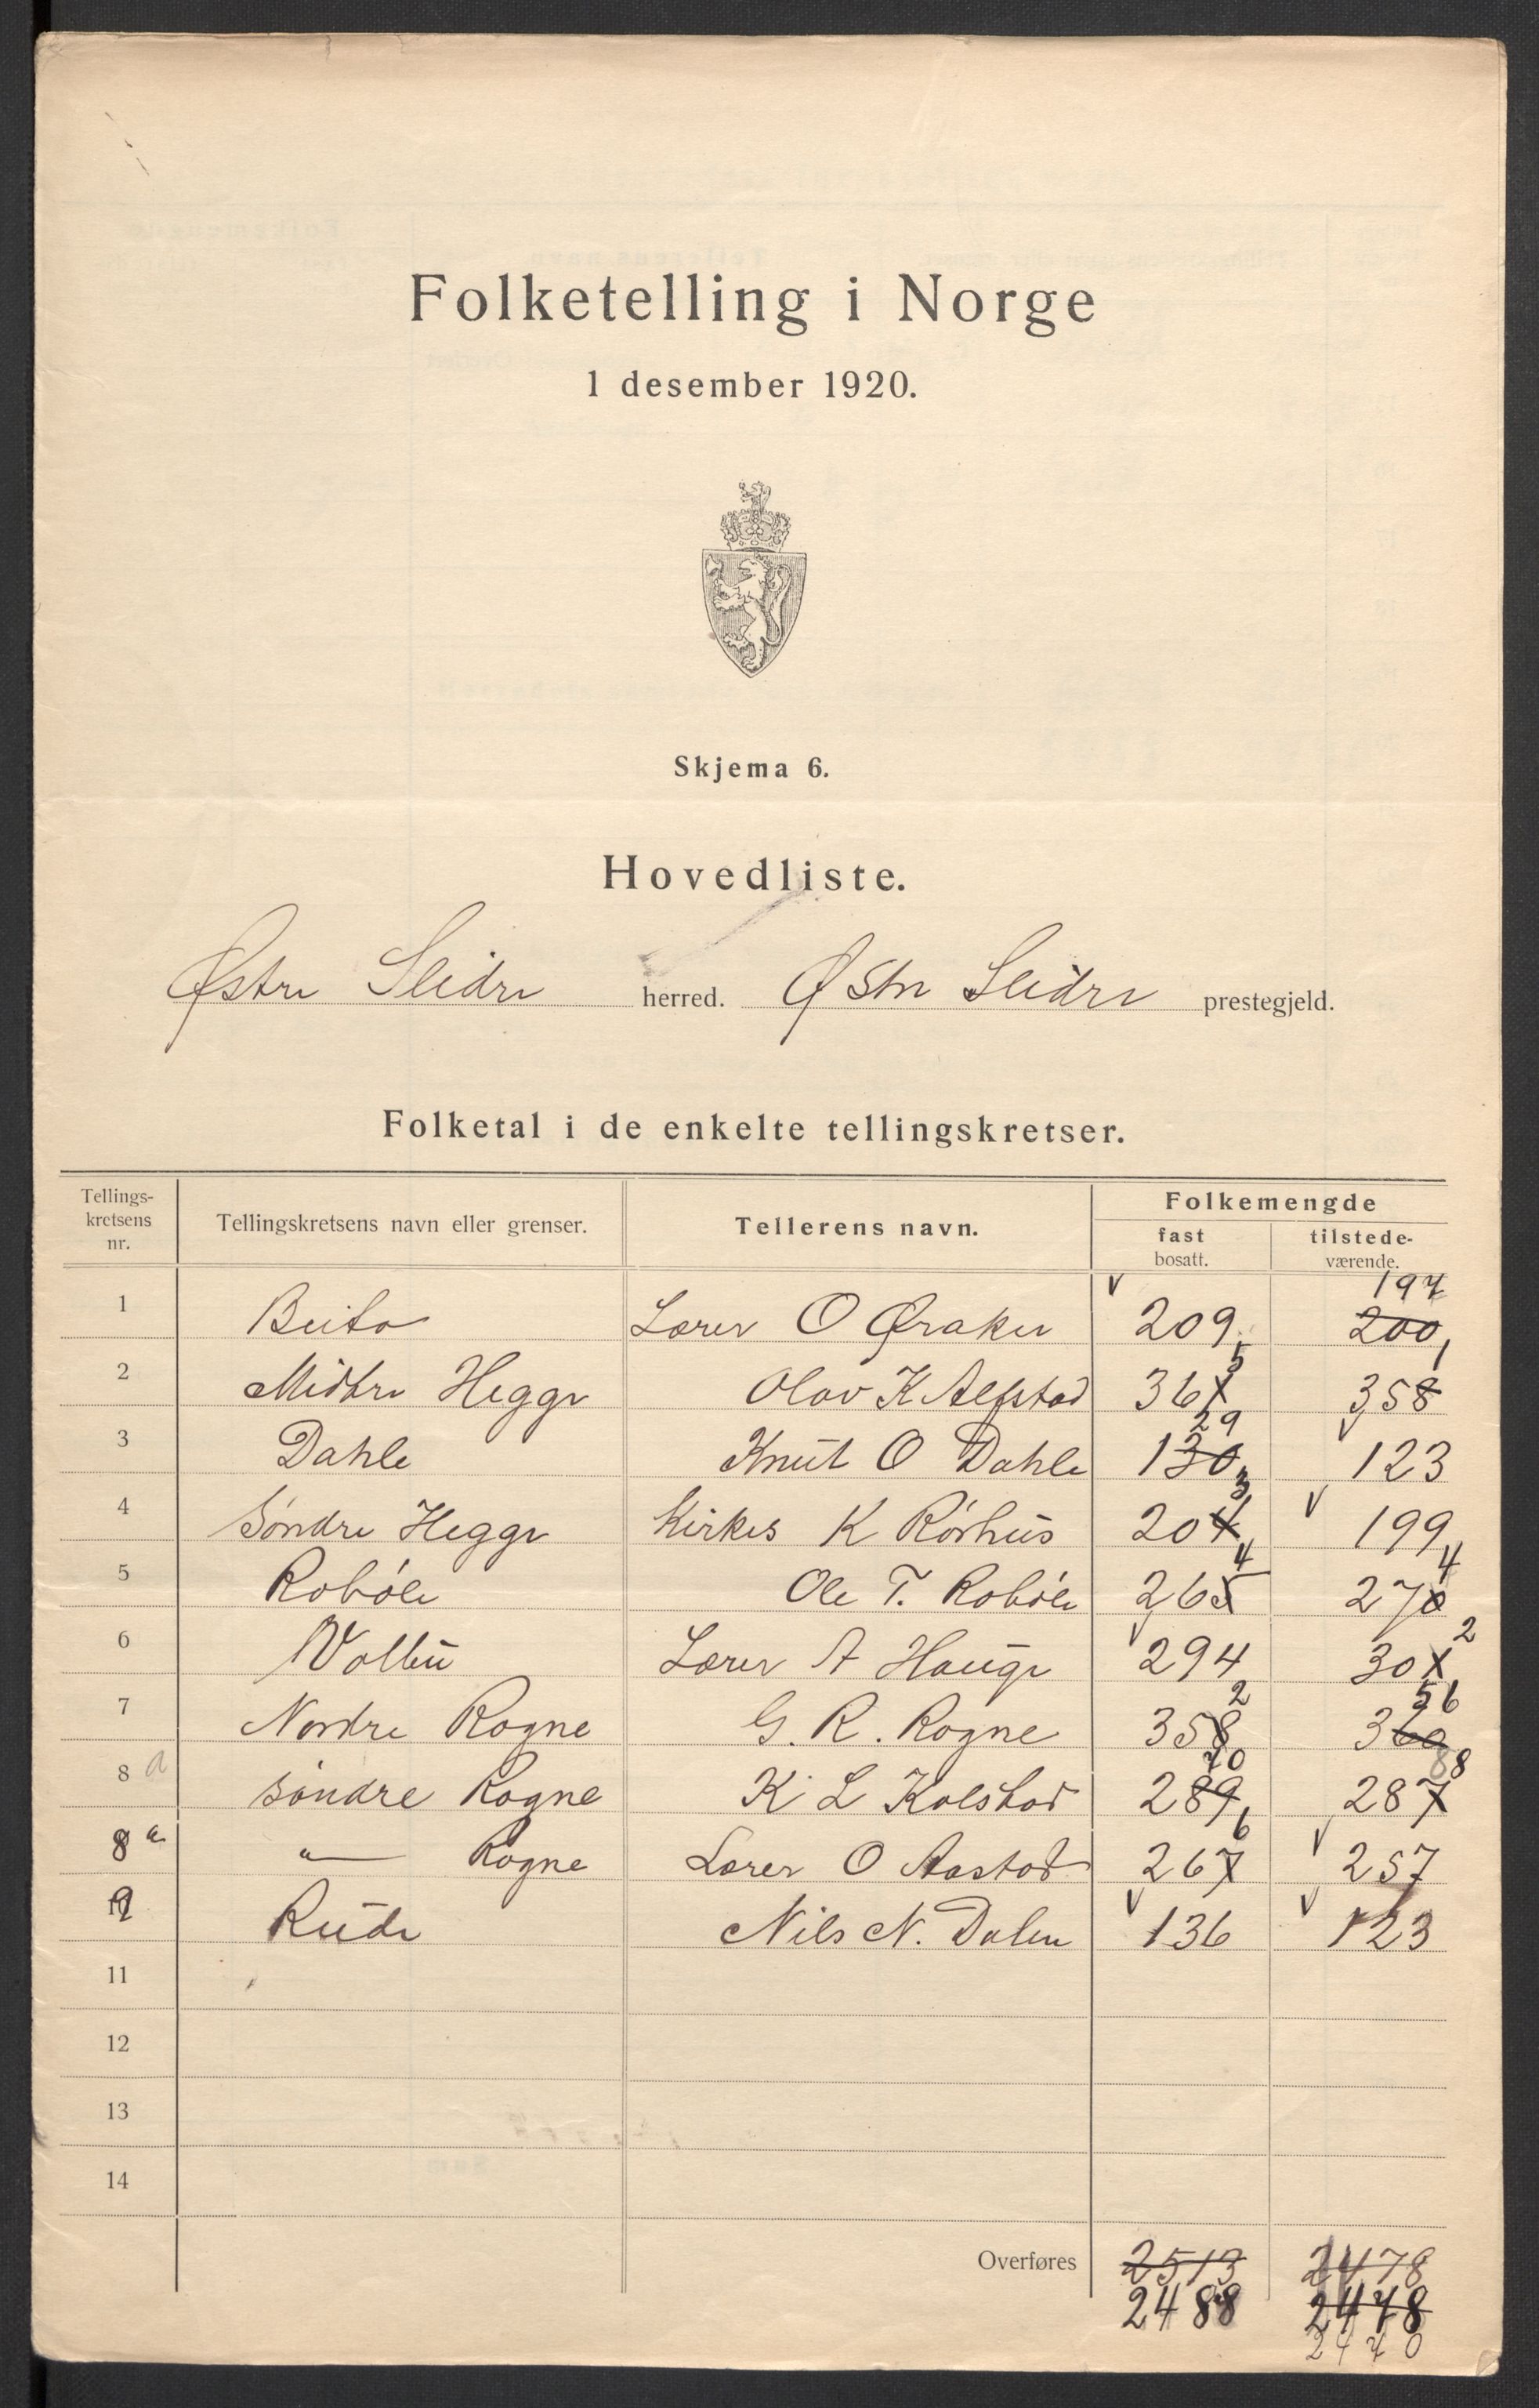 Folketelling i Norge
1 desember 1920.
Skjema 6.
Hovedliste.
Østre Slidre herred. Østre Slidre prestegjeld.
Folketal i de enkelte tellingskretser.
Tellings-kretsens nr. Tellingskretsens navn eller grenser. Tellerens navn. Folkemengde
fast bosatt. tilstede-værende.
197
1 Beito Lærer O Øraker 209 200
5 1
2 Midtre Hegge Olav K Alfstad 361 358
29
3 Dahle Knut O Dahle 130 123
3
4 Søndre Hegge Kirkes K Rørhus 204 199
4 4
5 Robøle Ole T. Robøle 265 270
2
6 Volbu Lærer A Hauge 294 301
2 56
7 Nordre Rogne G. R. Rogne 358 360
70 88
8 a Søndre Rogne K L Kolstad 289 287
6
8 a " Rogne Lærer O Aastad 267 257
9 Rude Nils N. Dalen 136 123
11
12
13
14
Overføres 2513 2478
2488 2478
2470